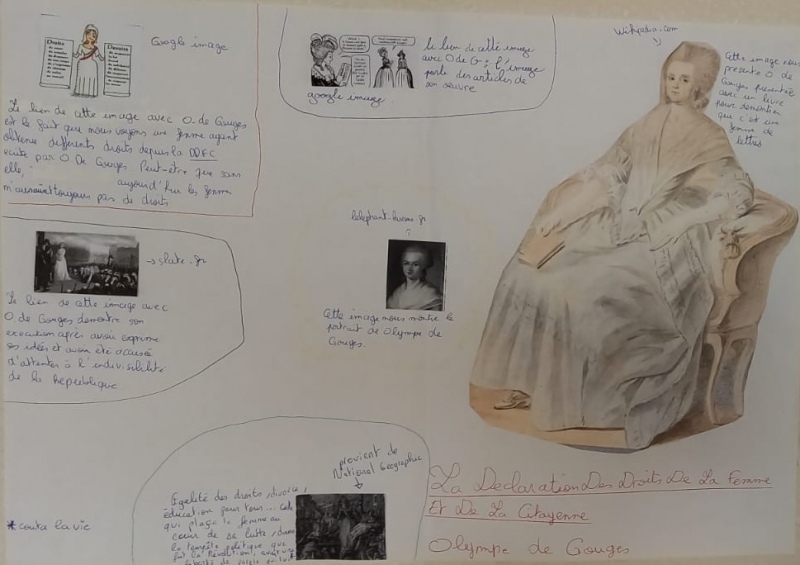 Droits
Devoirs
Google image
Le lien de cette image avec O. de Gouges
est le fait que nous voyons une femme ayant
obtenue différents droits depuis la DDFC
ecrite par O De Gouges Peut-être que sans
elle, aujourd'hui les femme
n'auraient toujours pas de droits
le lien de cette image
avec O de G: l'image
parle des articles de
son œuvre
google image
Wikipedia.com
Cette image nous
presente O de
Gouges presentée
avec un livre
pour démontrer
que c'est une
femme de
lettres
→ slate.fr
Le lien de cette image avec
O de Gouges demontre son
execution après avoir exprimé
ses idées et avoir été accusée
d'attenter à l'indivisibilité
de la République
Cette image nous montre le
portrait de Olympe de
Gouges.
provient de
National Geographic
Egalité des droits, divorce,
éducation pour tous...
qui plaça la femme au
coeur de sa lutte, dans
la tempête politique que
fut la Révolution,
*conta la vie
La Declaration Des Droits De La Femme
Et De La Citoyenne
Olympe de Gouges